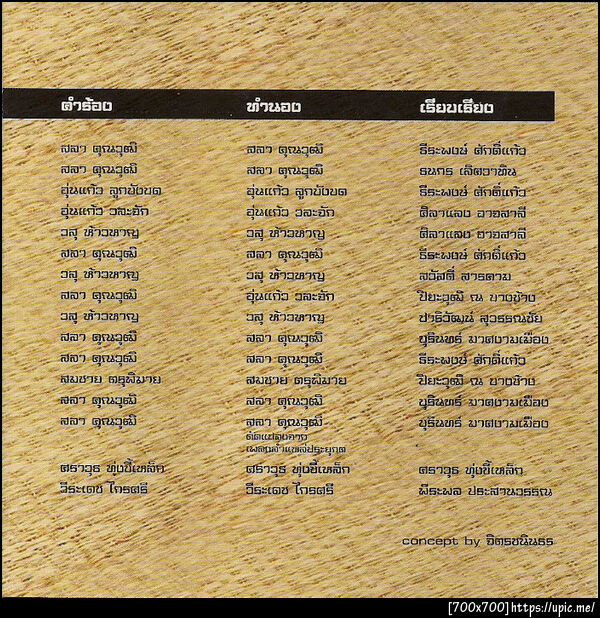 คำร้อง ทำนอง เรียบเรียง
สลา คุณวุฒิ สลา คุณวุฒิ ธีระพงษ์ ศักดิ์แก้ว
สลา คุณวุฒิ สลา คุณวุฒิ ธนกร เลิศวาทิน
อุ่นแก้ว ลูกบังบด อุ่นแก้ว ลูกบังบด ธีระพงษ์ ศักดิ์แก้ว
อุ่นแก้ว วละอัก อุ่นแก้ว วละอัก ศิลาแลง อาจสาลี
วสุ ห้าวหาญ วสุ ห้าวหาญ ศิลาแลง อาจสาลี
สลา คุณวุฒิ สลา คุณวุฒิ ธีระพงษ์ ศักดิ์แก้ว
วสุ ห้าวหาญ วสุ ห้าวหาญ สวัสดิ์ สารคาม
สลา คุณวุฒิ อุ่นแก้ว วละอัก ปิยะวุฒิ ณ บางช้าง
วสุ ห้าวหาญ วสุ ห้าวหาญ ปาริวัฒน์ สุวรรณชัย
สลา คุณวุฒิ สลา คุณวุฒิ บุรินทร์ มาศงามเมือง
สลา คุณวุฒิ สลา คุณวุฒิ ธีระพงษ์ ศักดิ์แก้ว
สมชาย ครุพิมาย สมชาย ครุพิมาย ปิยะวุฒิ ณ บางช้าง
สลา คุณวุฒิ สลา คุณวุฒิ บุรินทร์ มาศงามเมือง
สลา คุณวุฒิ สลา คุณวุฒิ บุรินทร์ มาศงามเมือง
ดัดแปลงจาก
ศราวุธ ทุ่งขี้เหล็ก ศราวุธ ทุ่งขี้เหล็ก ศราวุธ ทุ่งขี้เหล็ก
วีระเดช ไกรศรี วีระเดช ไกรศรี พีระพล ประสานวรรณ
concept by จิตรชนินธร
[700x700]https://upic.me/